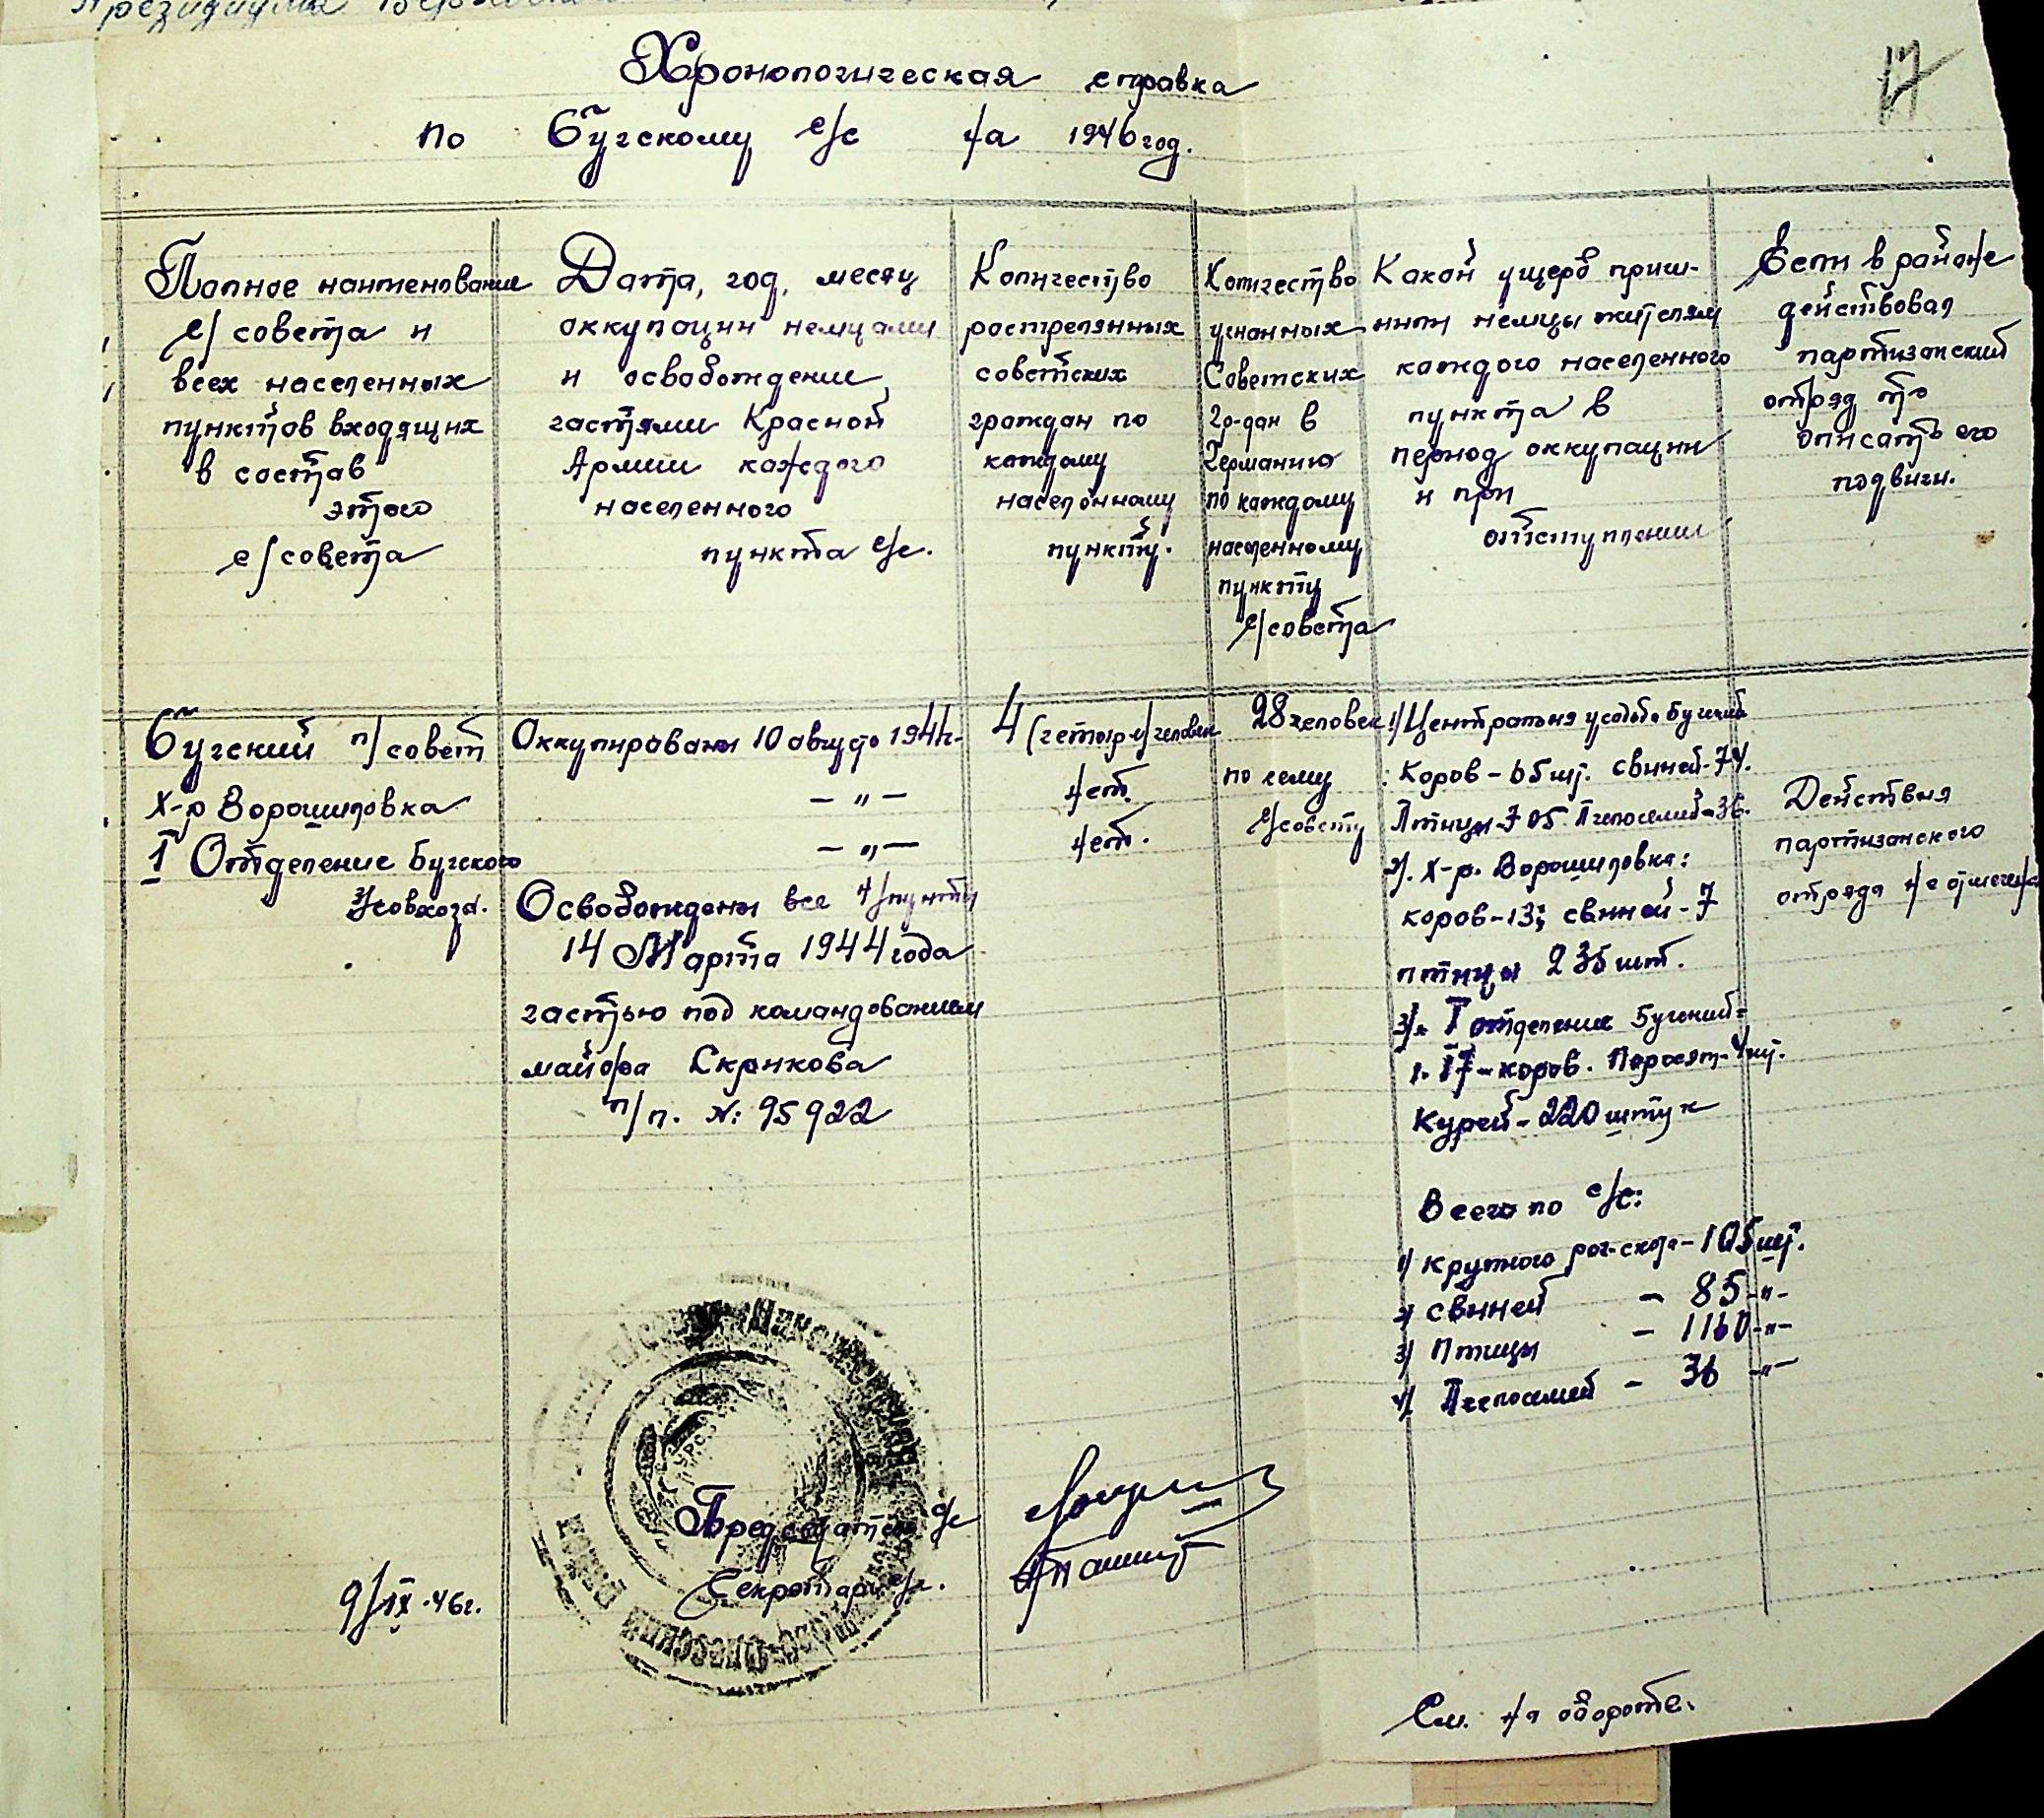 Президиума Верховно
17
Хронологическая справка
по Бугскому с/с на 1946 год.
Полное наименование
с/совета и
всех населенных
пунктов входящих
в состав
этого
с/совета
Дата, год, месяц
оккупации немцами
и освобождение
частями Красной
Армии каждого
населенного
пункта с/с.
Количество
расстрелянных
советских
граждан по
каждому
населённому
пункту.
Количество
угнанных
Советских
гр-дан в
Германию
по каждому
населенному
пункту
с/совета
Какой ущерб прич-
нили немцы жителям
каждого населенного
пункта в
период оккупации
и при
отступлении
Если в районе
действовал
партизанский
отряд то
описать его
подвиги.
Бугский п/совет
х-р Ворошиловка
I Отделение Бугского
з/совхоза.
Оккупированы 10 августа 1941г.
— " —
— " —
Освобождены все н/пункты
14 Марта 1944 года
частью под командованием
майора Скрикова
п/п. №: 95922
4 (четыре) человек
нет.
нет.
28 человек
по сему
с/совету
1) Центральня усадьба Бугский
: Коров - 65 шт. свиней - 74.
Птицы - 705. Пчелосемей - 36.
2). х-р. Ворошиловка:
коров - 13; свиней - 7
птицы 235 шт.
3). I отделение Бугский:
1. 17 - коров. Поросят - 4 шт.
Курей - 220 штук
Всего по с/с:
1) крупного рог-скота - 105 шт.
2) свиней - 85 - " -
3) Птицы - 1160 - " -
4) Пчелосемей - 36 - " -
Действия
партизанского
отряда не отмечена
Председатель с/с
Секретарь с/с.
9/IX-46г.
См. на обороте.